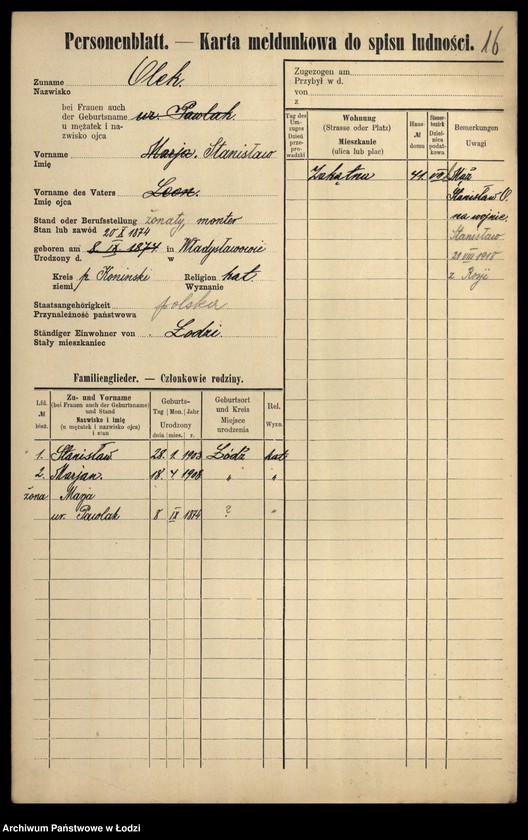 Personenblatt. — Karta meldunkowa do spisu ludności. 16
Zuname
Nazwisko
Olek.
bei Frauen auch
der Geburtsname
u mężatek i na-
zwisko ojca
ur. Pawlak
Vorname
Imię
Marja. Stanisław
Vorname des Vaters
Imię ojca
Leon.
Stand oder Berufsstellung
Stan lub zawód
żonaty, monter
20 X 1874
geboren am 8 IX 1874. in Władysławowie
Urodzony d. w
Kreis
ziemi
p. Koninski
Religion
Wyznanie
kat.
Staatsangehörigkeit
Przynależność państwowa
polska
Ständiger Einwohner von
Stały mieszkaniec
Łodzi.
Familienglieder. — Członkowie rodziny.
Lfd.
№
bież.
Zu- und Vorname
(bei Frauen auch der Geburtsname)
und Stand
Nazwisko i imię
(u mężatek i nazwisko ojca)
i stan
Geburts-
Tag Mon. Jahr
Urodzony
dnia mies. r.
Geburtsort
und Kreis
Miejsce
urodzenia
Rel.
Wyzn.
1. Stanisław 28. 1. 1903 Łódź kat.
2. Marjan. 18. 4. 1908 " "
żona Marja
ur. Pawlak 8 IX 1874 ? "
Zugezogen am
Przybył w d.
von
z
Tag des
Um-
zuges
Dzień
prze-
prowadzki
Wohnung
(Strasse oder Platz)
Mieszkanie
(ulica lub plac)
Haus-
№
domu
Steuer-
bezirk
Dziel-
nica
podat-
kowa
Bemerkungen
Uwagi
Zakątna 41. VII
Mąż
Stanisław O.
na wojnie.
Stanisław
21 VIII 1918
z Rosji
Archiwum Państwowe w Łodzi